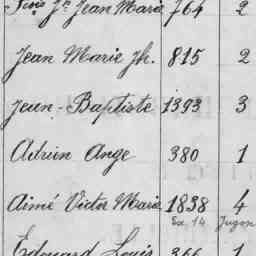 Fçois Jh Jean Marie 764 2
Jean Marie Jh. 815 2
Jean-Baptiste 1393 3
Adrien Ange 380 1
Aimé Victor Marie 1838 4
Ex. 14 Jugon
Edouard Louis 366 1